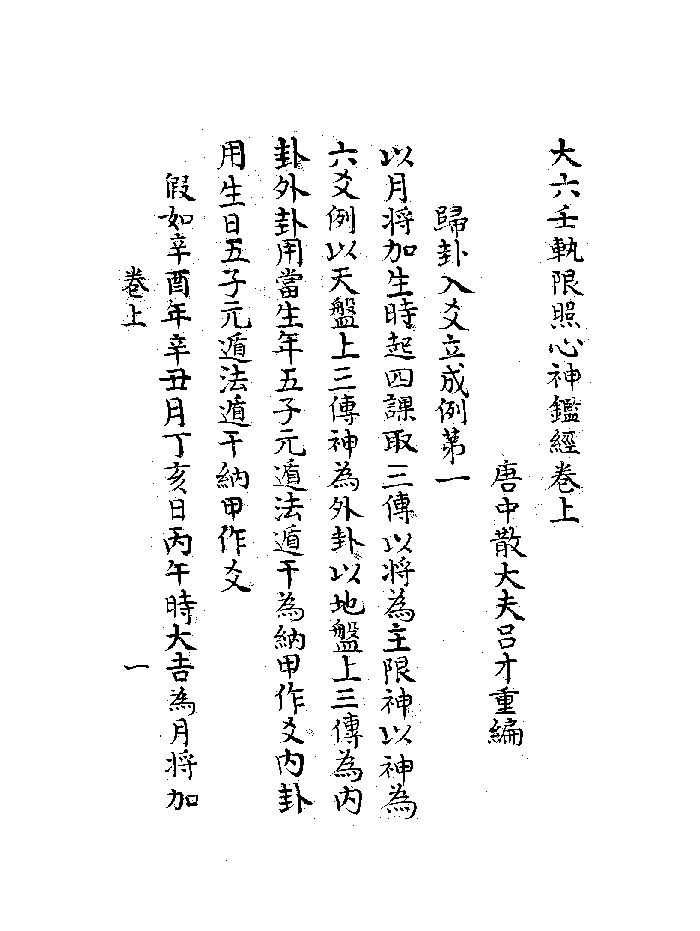 大六壬軌限照心神鑑經卷上
唐中散大夫呂才重編
歸卦入爻立成例第一
以月将加生時起四課取三傳以将為主限神以神為
六爻例以天盤上三傳神為外卦以地盤上三傳為内
卦外卦用當生年五子元遁法遁干為納甲作爻内卦
用生日五子元遁法遁干納甲作爻
假如辛酉年辛丑月丁亥日丙午時大吉為月将加
卷上
一